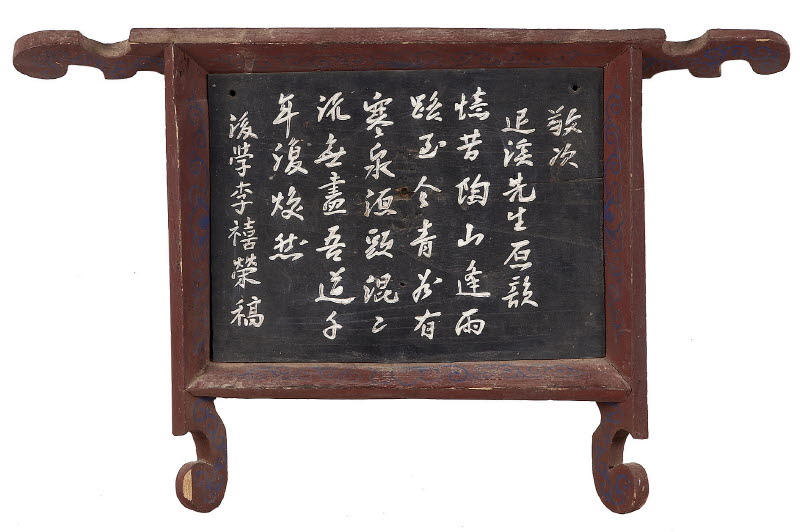 敬次
退溪先生原韻
憶昔陶山逢雨
至今青有
寒泉源頭混〻
流無盡吾道千
年復煥然
後學李禧榮稿